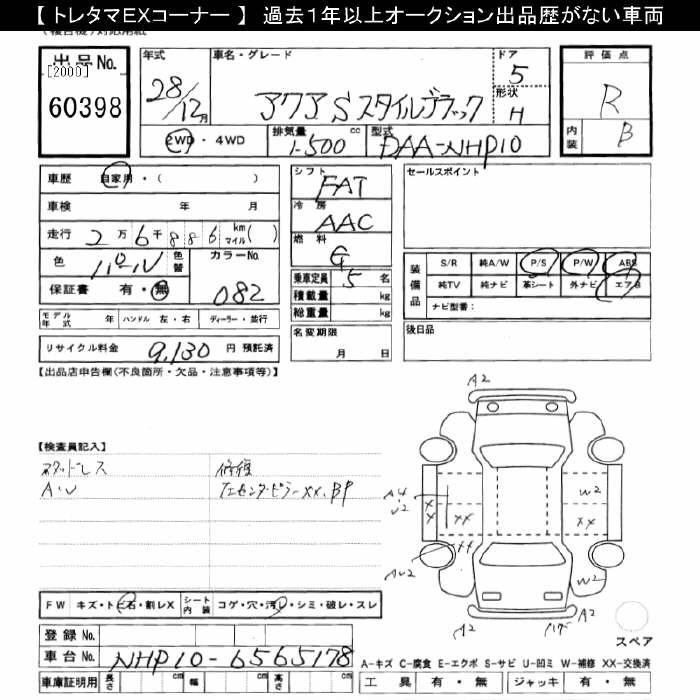 【 トレタマEXコーナー 】 過去１年以上オークション出品歴がない車両
出品No.
[2000]
60398
年式
28/12月
車名・グレード
アクア S スタイルブラック
ドア
5
形状
H
2WD・4WD
排気量
1-500 cc
型式
DAA-NHP10
評価点
R
内装
B
車歴 自家用・( )
車検 年 月
走行 2万6千886 km マイル( )
色 パール 色替
カラーNo.
082
保証書 有・無
モデル年式 年 ハンドル 左・右 ディーラー・並行
リサイクル料金 9,130 円 預託済
シフト
FAT
冷房
AAC
燃料
G
乗車定員 5 名
積載量 kg
総重量 kg
名変期限
月 日
セールスポイント
装備品
S/R 純A/W P/S P/W ABS
純TV 純ナビ 革シート 外ナビ エアB
ナビ型番:
後日品
【出品店申告欄(不良箇所・欠品・注意事項等)】
【検査員記入】
スタッドレス
A・U
修復
センターピラーXX、BP
A2
A4
U2
XX
XX
XX
W2
XX
W2
AU2
A2
A2
スペア
FW キズ・トビ石・割レX シート内装 コゲ・穴・汚レ・シミ・破レ・スレ
登録 No.
車台No. NHP10-6565178
車庫証明用 長さ cm 幅 cm 高さ cm
A-キズ C-腐食 E-エクボ S-サビ U-凹ミ W-補修 XX-交換済
工具 有・無 ジャッキ 有・無